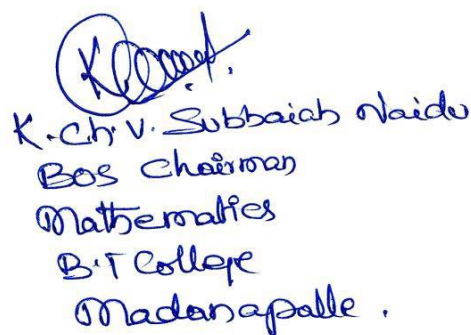 K. Ch. V. Subbaiah Naidu
BOS Chairman
Mathematics
B.T College
Madanapalle .